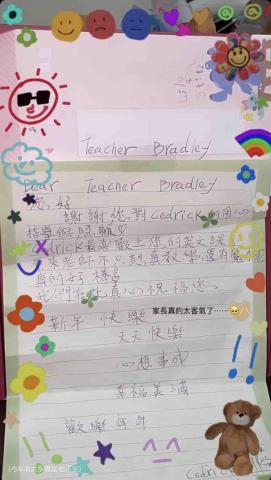 Teacher Bradley
Dear Teacher Bradley
您好
謝謝您對Cedrick的用心
指導與照顧
Cedrick最喜歡上您的英文課
老師不只認真教學,還有
真的好棒
我們在此真心祝福您
新年快樂
家長真的太客氣了……
天天快樂
心想事成
幸福美滿
歡樂年年
Cedric